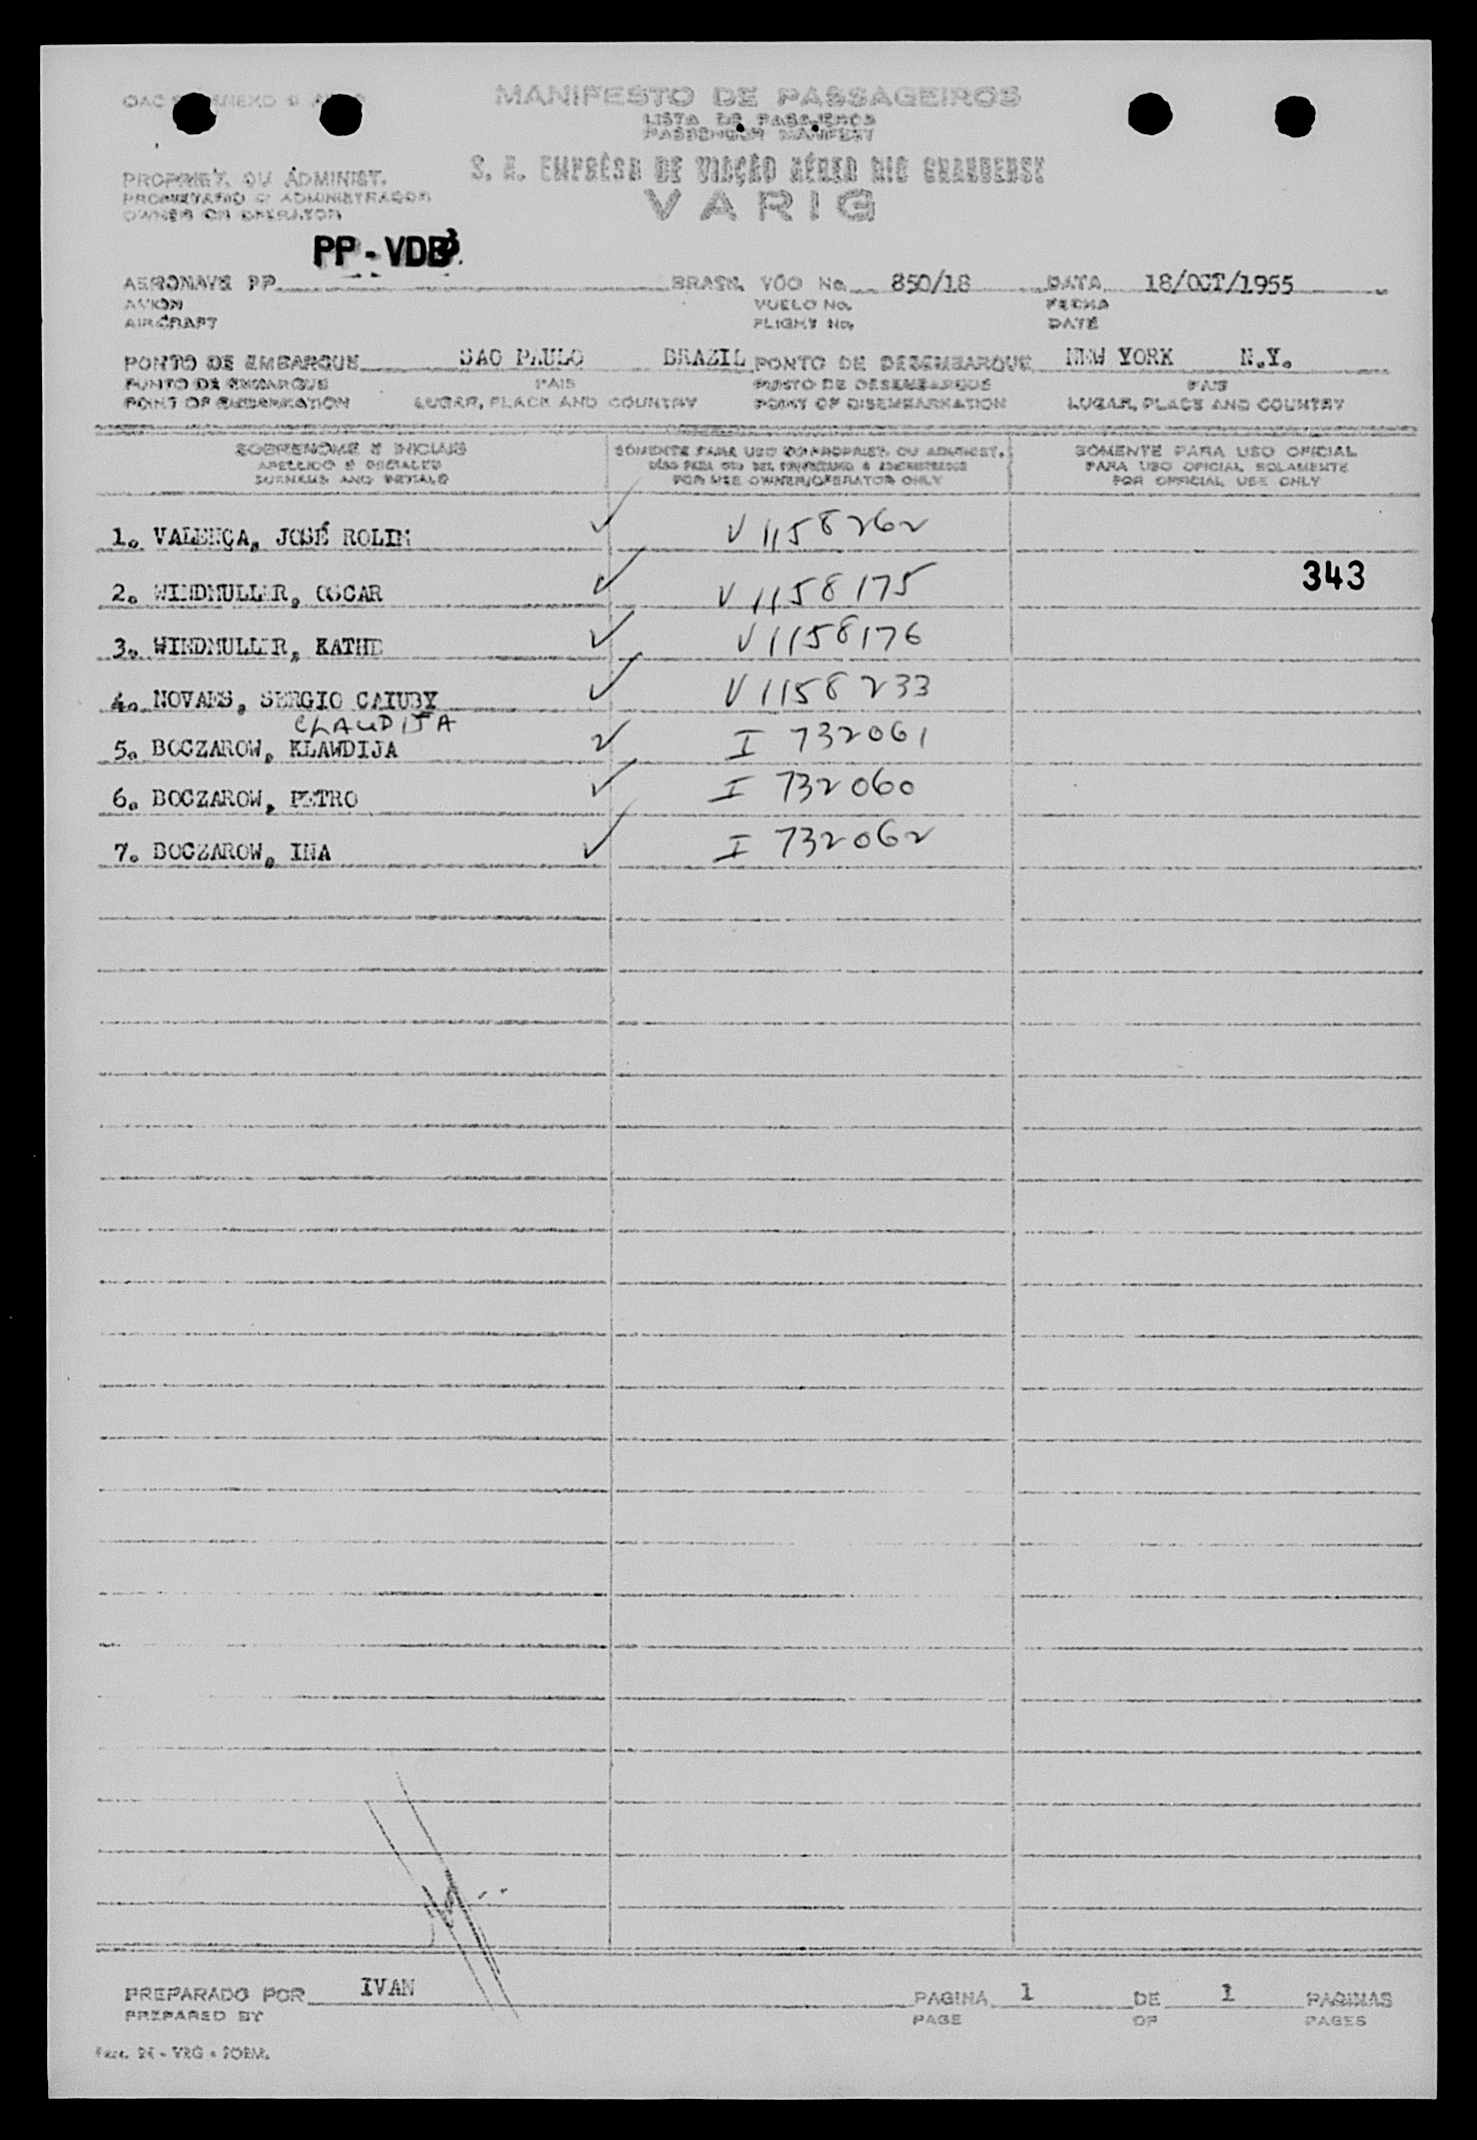 MANIFESTO DE PASSAGEIROS
LISTA DE PASAJEROS
PASSENGER MANIFEST
PROPRIET. OU ADMINIST.
PROPRIETARIO O ADMINISTRADOR
OWNER OR OPERATOR
S. A. EMPRÊSA DE VIAÇÃO AÉREA RIO GRANDENSE
VARIG
PP-VDB
AERONAVE PP BRASIL VÔO No. 850/18 DATA 18/OCT/1955
AVION VUELO No. FECHA
AIRCRAFT FLIGHT No. DATE
PONTO DE EMBARQUE SAO PAULO BRAZIL PONTO DE DESEMBARQUE NEW YORK N.Y.
PUNTO DE EMBARQUE PAIS PUNTO DE DESEMBARQUE PAIS
POINT OF EMBARKATION LUGAR, PLACE AND COUNTRY POINT OF DISEMBARKATION LUGAR, PLACE AND COUNTRY
SOBRENOME E INICIAIS SÓMENTE PARA USO DO PROPRIET. OU ADMINIST. SÓMENTE PARA USO OFICIAL
APELLIDO E INICIALES PARA USO OFICIAL SOLAMENTE
SURNAME AND INITIALS FOR USE OWNER/OPERATOR ONLY FOR OFFICIAL USE ONLY
1. VALENÇA, JOSÉ ROLIM V 1158262
343
2. WINDMULLER, OSCAR V 1158175
3. WINDMULLER, KATHE V 1158176
4. NOVAES, SERGIO CAIUBY V 1158233
CLAUDIJA
5. BOCZAROW, KLAWDIJA I 732061
6. BOCZAROW, PETRO I 732060
7. BOCZAROW, INA I 732062
PREPARADO POR IVAN PAGINA 1 DE 1 PAGINAS
PREPARED BY PAGE OF PAGES